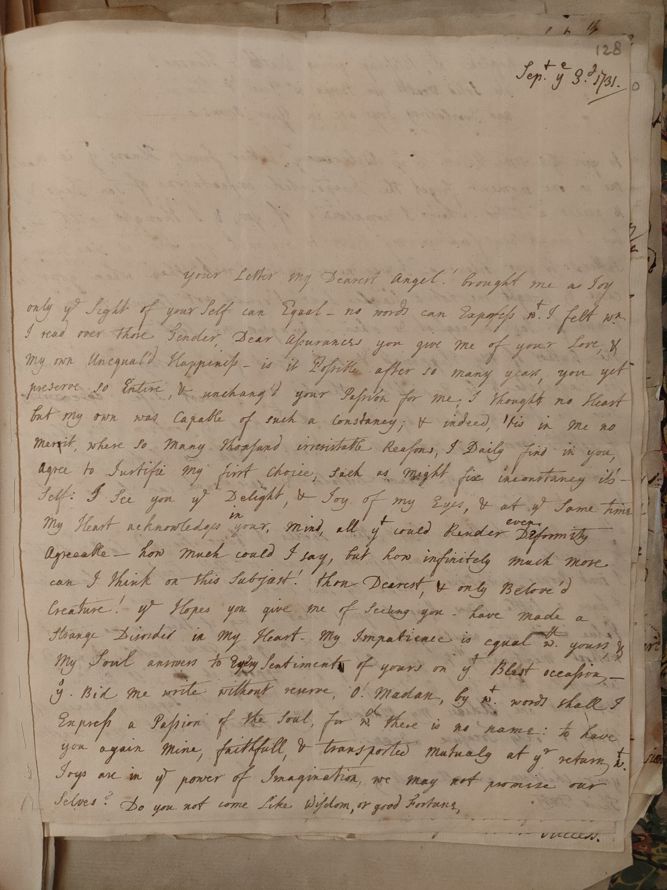 128
Sep.t ye 3.d 1731.
your Letter my Dearest Angel! brought me as Joy
only ye Sight of your Self can Equal – no words can Express wt. I felt wn.
I read over those Tender, Dear Assurances you give me of your Love, &
my own Unequal'd Happiness – is it Possible after so many years, you yet
preserve so Entire, & unchang'd your Passion for me; I thought no Heart
but my own was Capable of such a Constancy; & indeed, 'tis in me no
merrit, where so many thousand irresistable Reasons, I Daily find in you,
agree to Justifie my first Choice, such as might fix inconstancy it's
Self: I See you ye Delight, & Joy of my Eyes, & at ye Same time
My Heart acknowledges in your, mind, all yt could Render even Deformity
Agreeable – how much could I say, but how infinitely much more
can I think on this Subject! thou Dearest, & only Belov'd
Creature! ye Hopes you give me of Seeing you – have made a
Strange Disorder in my Heart – My Impatience is equal wth. yours, &
My Soul answers to Every Sentiment of yours on yt Blest occassion, –
y. Bid me write without reserve, O! Madam, by wt. words shall I
Express a Passion of the Soul, for wch there is no name: to have
you again Mine, faithfull, & transported mutualy at yr return, wt.
Joys are in ye power of Imagination, we may not promise our
Selves? Do you not come Like Wisdom, or good Fortune,
success.